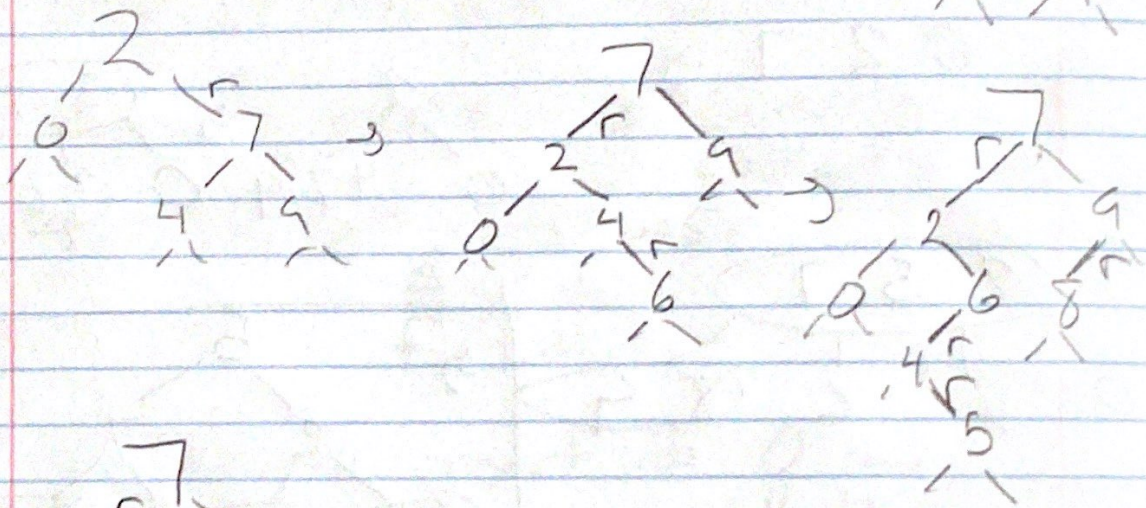 2
r
0 7 →
4 9
7
r
2 9 →
0 4
r
6
7
r
2 9
r
0 6 8
r
4
r
5
7
r